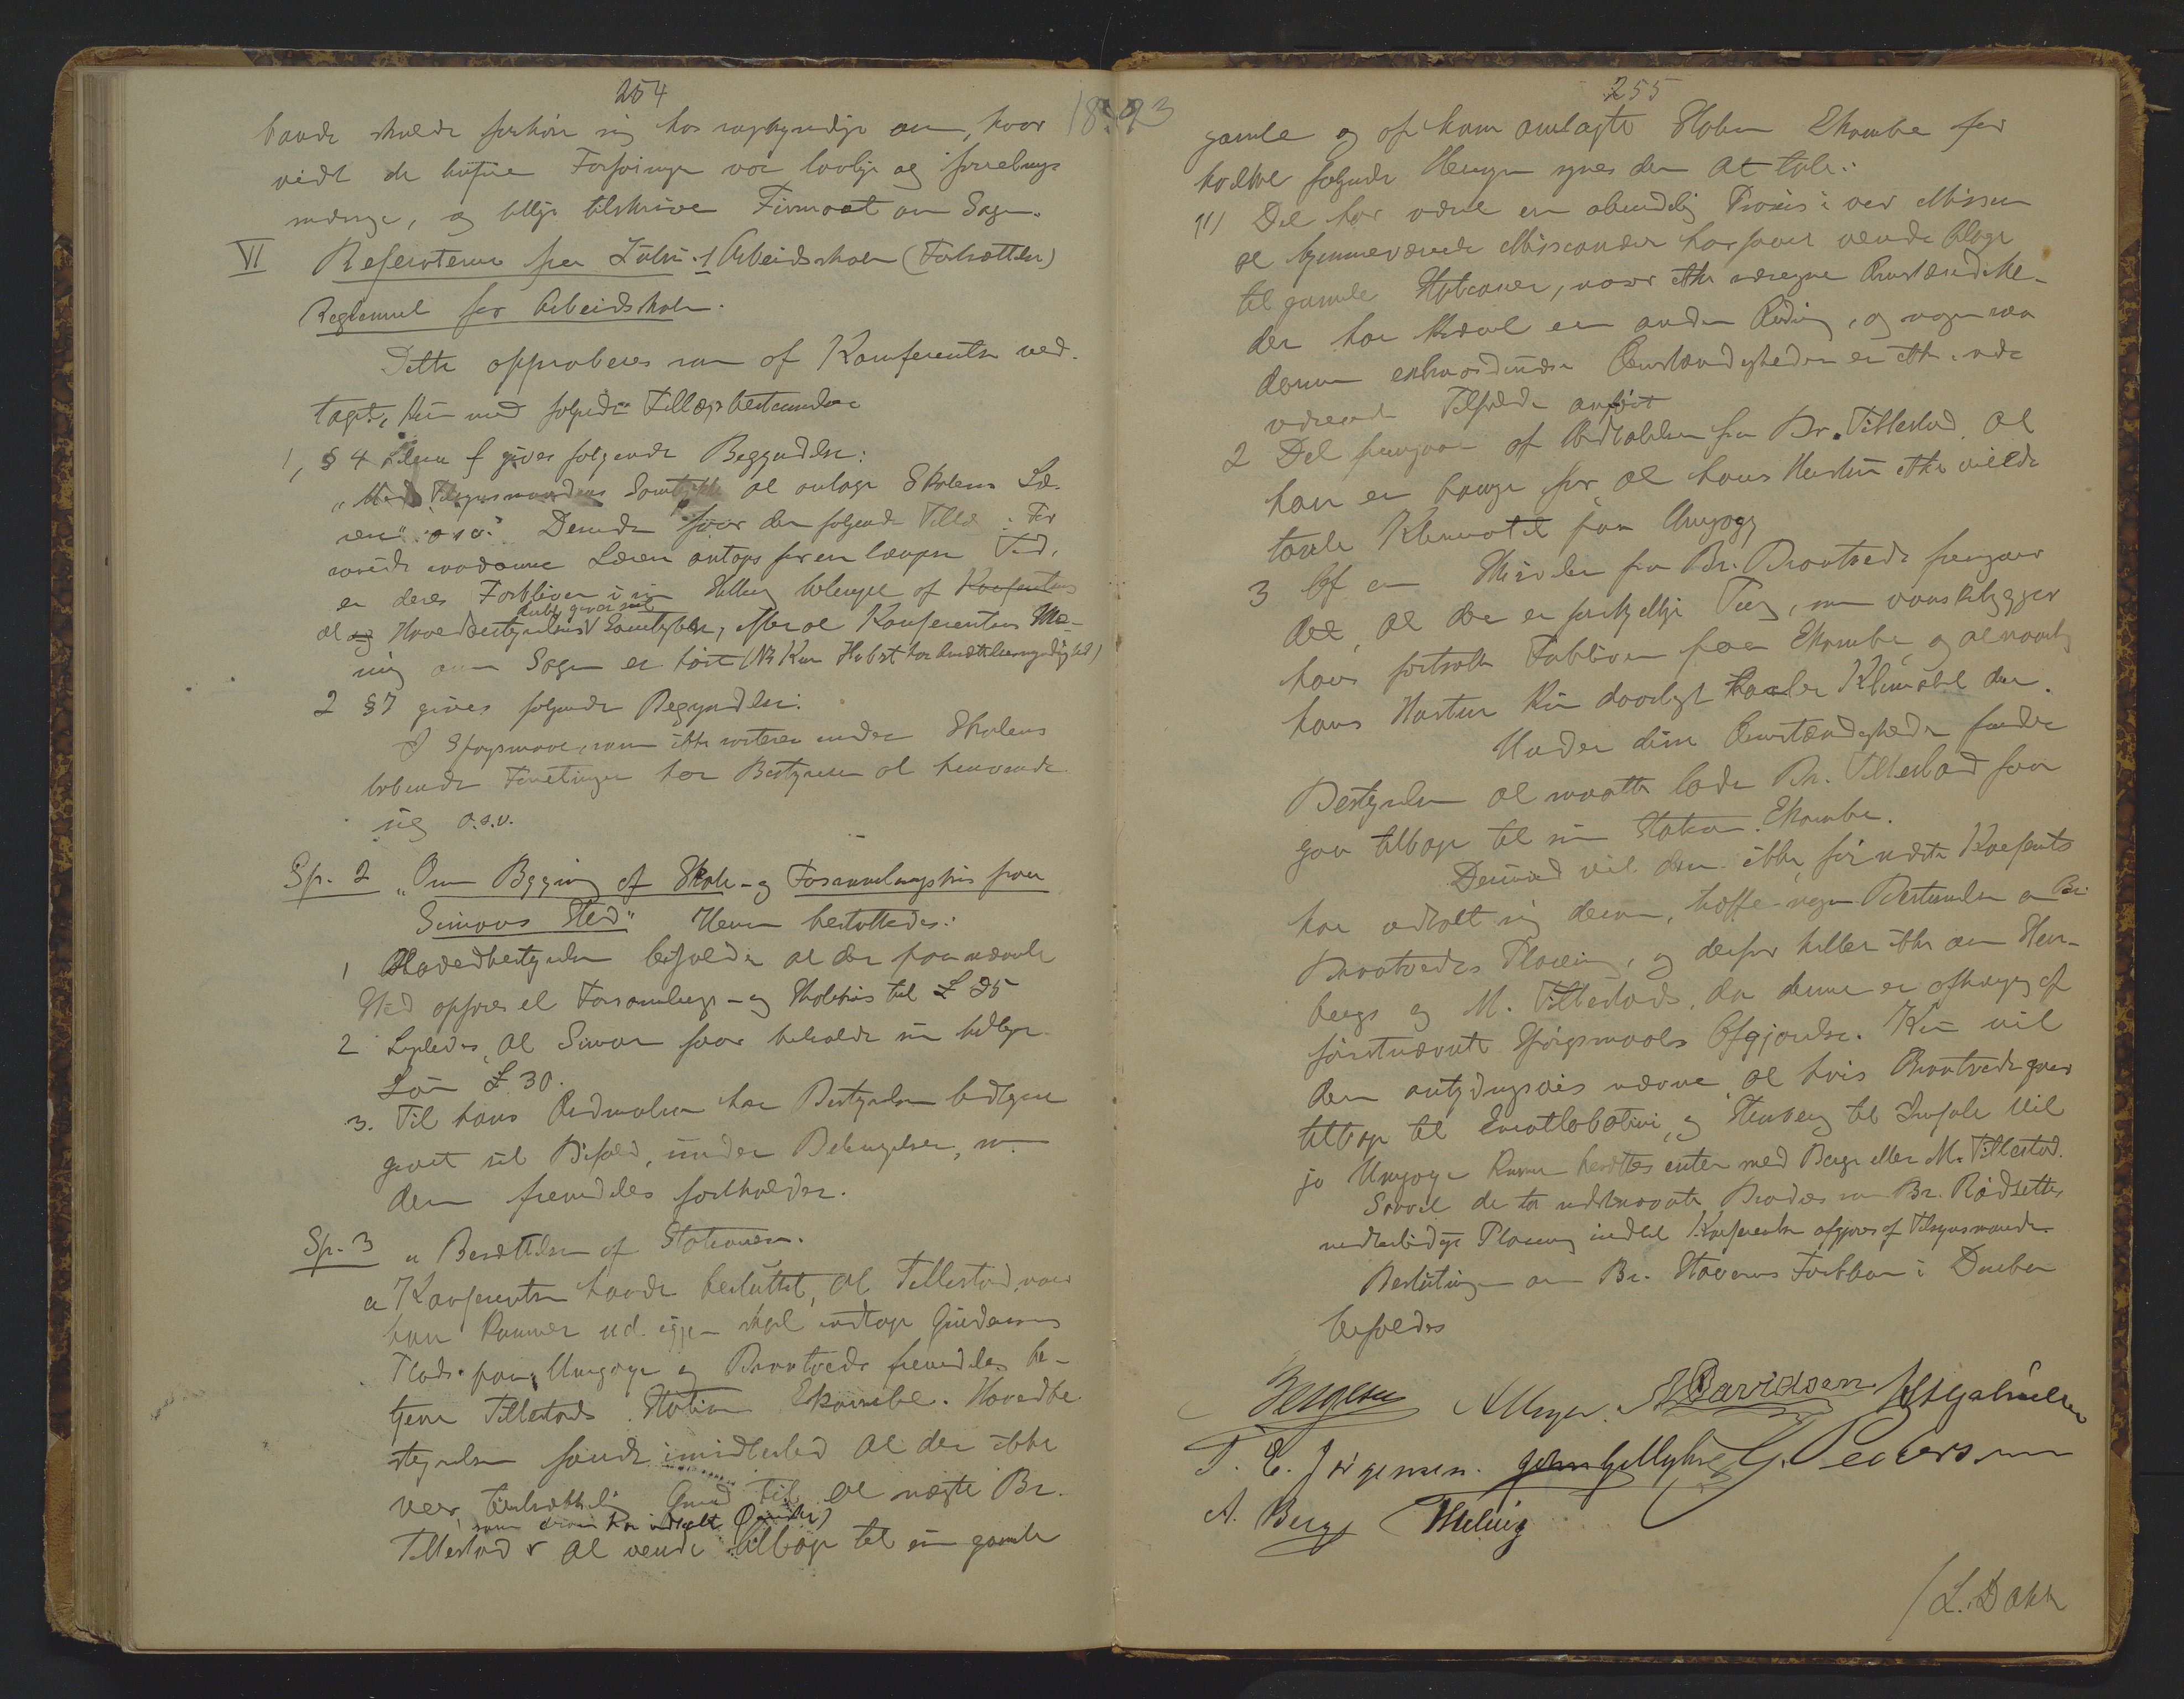 254
burde skulde forhøre sig hos sagkyndige om, hvor
vidt de trufne Forføininger var lovlige og
og tillige tilskrive Firmaet om Sagen.
VI Referaterne fra Zulu. 1 Arbeidsskolen (Fortsættelse)
Reglement for Arbeidsskolen.
Dette approberes som af Konferentsen ved-
taget, kun med følgende Tillægsbestemmelser
1, § 4 gives følgende Begyndelse:
"Med Tilsynsmandens Samtykke at antage Skolens Læ-
rere" o.s.v. Desuden faar den følgende Tillæg: For
saavidt saadanne Lærere antages for en længere Tid,
er deres Forbliven i sin Stilling betinget af Konferentsens
at og Hovedbestyrelsens Samtykke, efter at Konferentsens Me-
ning om Sagen er hørt
2 § 7 gives følgende Begyndelse:
I Spørgsmaal, som ikke sorterer under Skolens
løbende Forretninger har Bestyreren at henvende
sig o.s.v.
Sp. 2 "Om Bygging af Skole- og Forsamlingshus paa
Simons Sted" Herom besluttedes:
1 Hovedbestyrelsen bifalder at der paa nævnte
Sted opføres et Forsamlings- og Skolehus til £ 25
2 Ligeledes, at Simon faar beholde sin tidligere
Løn £ 30.
3. Til hans Ordination har Bestyrelsen tidligere
givet sit Bifald, under Betingelser, som
den fremdeles fastholder.
Sp. 3 a Besættelsen af Stationerne.
a Konferentsen havde besluttet, at Tillestad, naar
han kommer ud igjen skal indtage Gundersens
Plads paa Umgoye og Braatvedt fremdeles be-
tjene Tillestads Station Ekombe. Hovedbe-
styrelsen fandt imidlertid at der ikke
var tilstrækkelig Grund til at nægte Br.
som derom har indsøgt
Tillestad at vende tilbage til sin gamle
1893
255
gamle og af ham anlagte Station Ekombe for
hvilket følgende Hensyn synes den at tale:
1) Det har været en almindelig Praxis i vor Mission
at hjemmeværende Missionærer har faaet vende tilbage
til gamle Stationer, naar ikke særegne Omstændighe-
der har krævet en anden Ordning, og nogen saa
danne extraordinære Omstændigheder er ikke i nær
værende Tilfælde anført
2 Det fremgaar af Udtalelser fra Br. Tillestad, at
han er bange for, at hans Hustru ikke vilde
taale Klimatet paa Umgoye
3 Af en Skrivelse fra Br. Braatvedt fremgaar
det, at der er forskjellige Ting, som vanskeliggjør
hans fortsatte Forbliven paa Ekombe, og at navnlig
hans Hustru kun daarligt taaler Klimatet der.
Under disse Omstændigheder fandt
Bestyrelsen at maatte lade Br. Tillestad faa
gaa tilbage til sin Station Ekombe.
Derimod vil den ikke, før næste Konferents
har udtalt sig derom, træffe nogen Bestemmelse om Br.
Braatvedts Placering, og derfor heller ikke om Sten-
bergs og M. Tillestads, da denne er afhængig af
førstnævnte Spørgsmaals Afgjørelse. Kun vil
den antydningsvis nævne, at hvis Braatvedt gaar
tilbage til Ematlabatini, og Stenberg til Imfule vil
jo Umgoye kunne besættes enten med Berge eller M. Tillestad.
Saavel de to sidstnævnte Brødres som Br. Rødseths
midlertidige Placering indtil Konferentsen afgjøres af Tilsynsmanden.
Beslutningen om Br. Stavems Forbliven i Durban
bifaldes
A Meyer. Davidsen Gabrielsen
T. C. Jørgensen. G. Pedersen
A. Berge
/L. Dahle